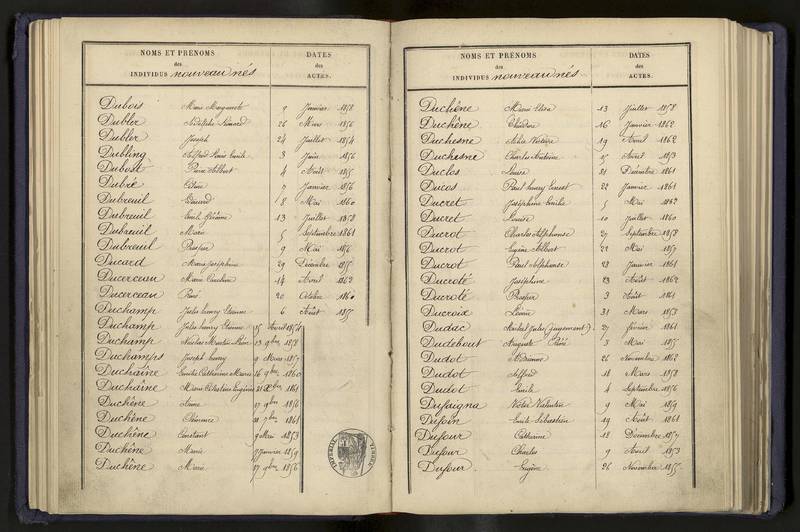 NOMS ET PRÉNOMS
des
INDIVIDUS nouveau nés
DATES
des
ACTES.
Dubois Marie Marguerite 9 Janvier 1858
Dubler 26 Mars 1856
Dubler Joseph 24 Juillet 1854
Dubling Alfred Louis Emile 3 Juin 1856
Dubost Pierre Albert 4 Août 1855
Dubré 7 Janvier 1856
Dubreuil 8 Mai 1860
Dubreuil Emile 13 Juillet 1858
Dubreuil Marie 5 Septembre 1861
Dubreuil Prosper 9 Mai 1856
Ducard Marie Joséphine 29 Décembre 1855
Ducerceau Marie Caroline 14 Avril 1862
Ducerceau 20 Octobre 1860
Duchamp Jules henry Etienne 6 Août 1855
Duchamp Jules henry Etienne 15 Avril 1856
Duchamp Nicolas Martin Léon 13 9bre 1858
Duchamps Joseph henry 9 Mars 1857
Duchaîne Emilie Catherine Marie 16 9bre 1860
Duchaîne Marie Célestine Eugénie 1861
Duchêne Anne 17 9bre 1856
Duchêne Clémence 7bre 1861
Duchêne Constant 9 Mai 1853
Duchêne Marie 7 Janvier 1859
Duchêne Marie 17 9bre 1856
NOMS ET PRÉNOMS
des
INDIVIDUS nouveau nés
DATES
des
ACTES.
Duchêne Marie Elisa 13 Juillet 1858
Duchêne Théodore 16 Janvier 1862
Duchesne 19 Avril 1862
Duchesne Charles Antoine 15 Avril 1853
Duclos Louise 21 Décembre 1861
Ducos Paul henry Ernest 22 Janvier 1861
Ducret Joséphine Emilie 5 Mai 1862
Ducret Louise 10 Juillet 1860
Ducrot Charles Alphonse 27 Septembre 1858
Ducrot Eugène Albert 22 Mai 1857
Ducrot Paul Alphonse 23 Janvier 1861
Ducroté Joséphine 23 Août 1862
Ducroté Prosper 3 Août 1861
Ducroix Léonie 31 Mars 1858
Dudac Martial Jules (jugement) 27 février 1861
Dudebout Auguste 3 Mai 1855
Dudot 26 Novembre 1862
Dudot Alfred 18 Mars 1858
Dudot Emile 4 Septembre 1856
Dufaigna Victor Valentin 9 Mai 1859
Dufoin Emile Sébastien 19 Août 1861
Dufour Catherine 18 Décembre 1857
Dufour Charles 9 Avril 1853
Dufour Eugène 26 Novembre 1855